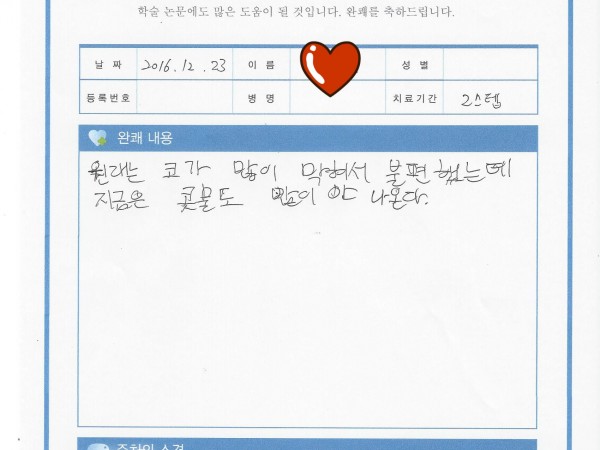 학술 논문에도 많은 도움이 될 것입니다. 완쾌를 축하드립니다.
날 짜 2016.12.23 이 름 성 별
등록번호 병 명 치료기간 2스텝
완쾌 내용
원래는 코가 많이 막혀서 불편했는데
지금은 콧물도 많이 안 나온다.